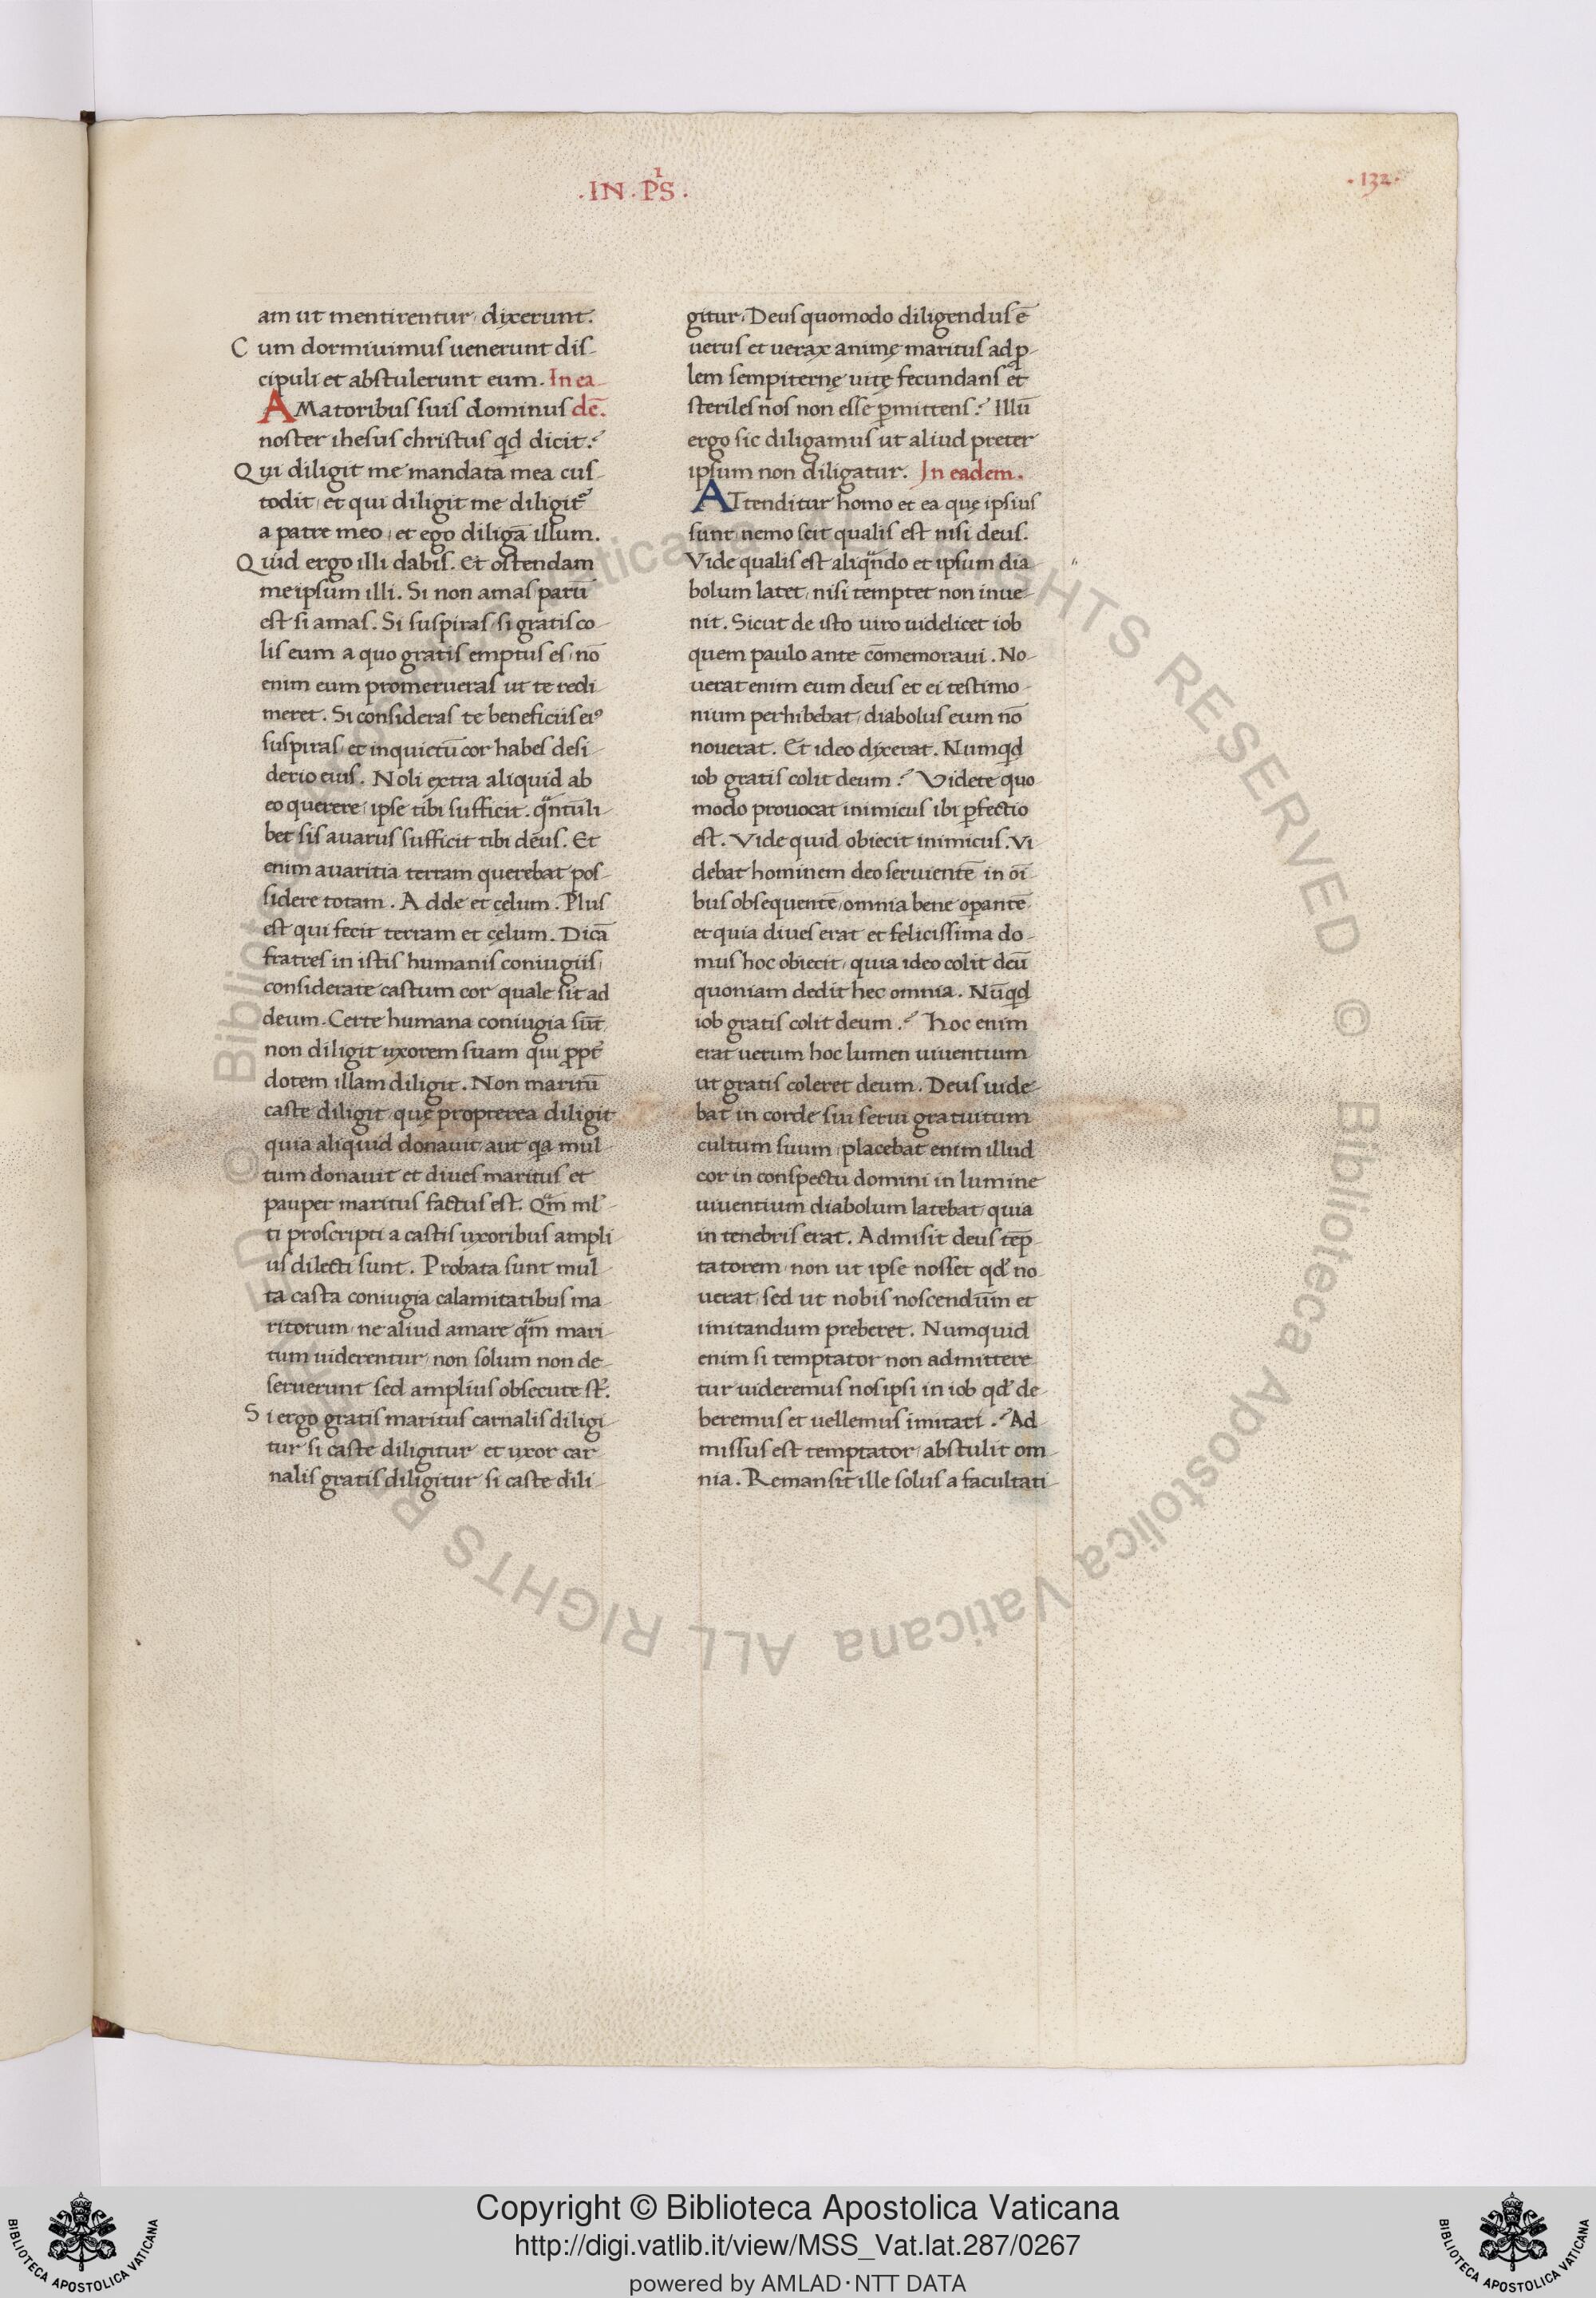 .IN.PS̄ı.
.132.
am ut mentirentur, dixerunt.
Cum dormiuimus uenerunt dis-
cipuli et abstulerunt eum. In ea-
AMatoribus suis dominus dē.
noster ihesus christus qd dicit.?
Qui diligit me mandata mea cus-
todit, et qui diligit me diligit᷑
a patre meo, et ego diligā illum.
Quid ergo illi dabis. Et ostendam
meipsum illi. Si non amas parū
est si amas. Si suspiras, si gratis co-
lis eum a quo gratis emptus es, nō
enim eum promerueras ut te redi-
meret. Si consideras te beneficiis eiꝰ
suspiras, et inquietū cor habes desi-
derio eius. Noli extra aliquid ab
eo querere, ipse tibi sufficit. qͣntūli-
bet sis auarus sufficit tibi deus. Et
enim auaritia terram querebat pos-
sidere totam. Adde et cęlum. Plus
est qui fecit terram et cęlum. Dicā
fratres in istis humanis coniugiis,
considerate castum cor quale sit ad
deum. Certe humana coniugia sūt,
non diligit uxorem suam qui ꝓpt̄
dotem illam diligit. Non maritū
caste diligit quę propterea diligit
quia aliquid donauit aut qa mul-
tum donauit et diues maritus et
pauper maritus factus est. Qm̄ ml᷑-
ti proscripti a castis uxoribus ampli-
us dilecti sunt. Probata sunt mul-
ta casta coniugia calamitatibus ma-
ritorum, ne aliud amare qͣm mari-
tum uiderentur, non solum non de-
seruerunt sed amplius obsecute st᷑.
Si ergo gratis maritus carnalis diligi-
tur si caste diligitur et uxor car-
nalis gratis diligitur si caste dili-
gitur. Deus quomodo diligendus ē
uerus et uerax animę maritus ad ꝓ-
lem sempiternę uitę fecundans et
steriles nos non esse ꝑmittens.? Illū
ergo sic diligamus ut aliud preter
ipsum non diligatur. In eadem.
ATtenditur homo et ea quę ipsius
sunt, nemo scit qualis est nisi deus.
Vide qualis est aliqͣndo et ipsum dia-
bolum latet, nisi temptet non inue-
nit. Sicut de isto uiro uidelicet iob
quem paulo ante cōmemoraui. No-
uerat enim eum deus et ei testimo-
nium perhibebat, diabolus eum nō
nouerat. Et ideo dixerat. Numqd
iob gratis colit deum.? Videte quo
modo prouocat inimicus ibi ꝑfectio
est. Vide quid obiecit inimicus. Vi
debat hominem deo seruientē in oī-
bus obsequentē, omnia bene oꝑantē
et quia diues erat et felicissima do-
mus hoc obiecit, quia ideo colit deū
quoniam dedit hec omnia. Nūqd
iob gratis colit deum.? Hoc enim
erat uerum hoc lumen uiuentium
ut gratis coleret deum. Deus uide-
bat in corde sui serui gratuitum
cultum suum, placebat enim illud
cor in conspectu domini in lumine
uiuentium diabolum latebat, quia
in tenebris erat. Admisit deus tēp-
tatorem, non ut ipse nosset qd᷑ no-
uerat, sed ut nobis noscendum et
imitandum preberet. Numquid
enim si temptator non admittere-
tur uideremus nosipsi in iob qd᷑ de-
beremus et uellemus imitari.? Ad-
missus est temptator, abstulit om-
nia. Remansit ille solus a facultati-
Copyright © Biblioteca Apostolica Vaticana
http://digi.vatlib.it/view/MSS_Vat.lat.287/0267
powered by AMLAD·NTT DATA
BIBLIOTECA APOSTOLICA VATICANA
BIBLIOTECA APOSTOLICA VATICANA
© Biblioteca Apostolica Vaticana ALL RIGHTS RESERVED © Biblioteca Apostolica Vaticana ALL RIGHTS RESERVED